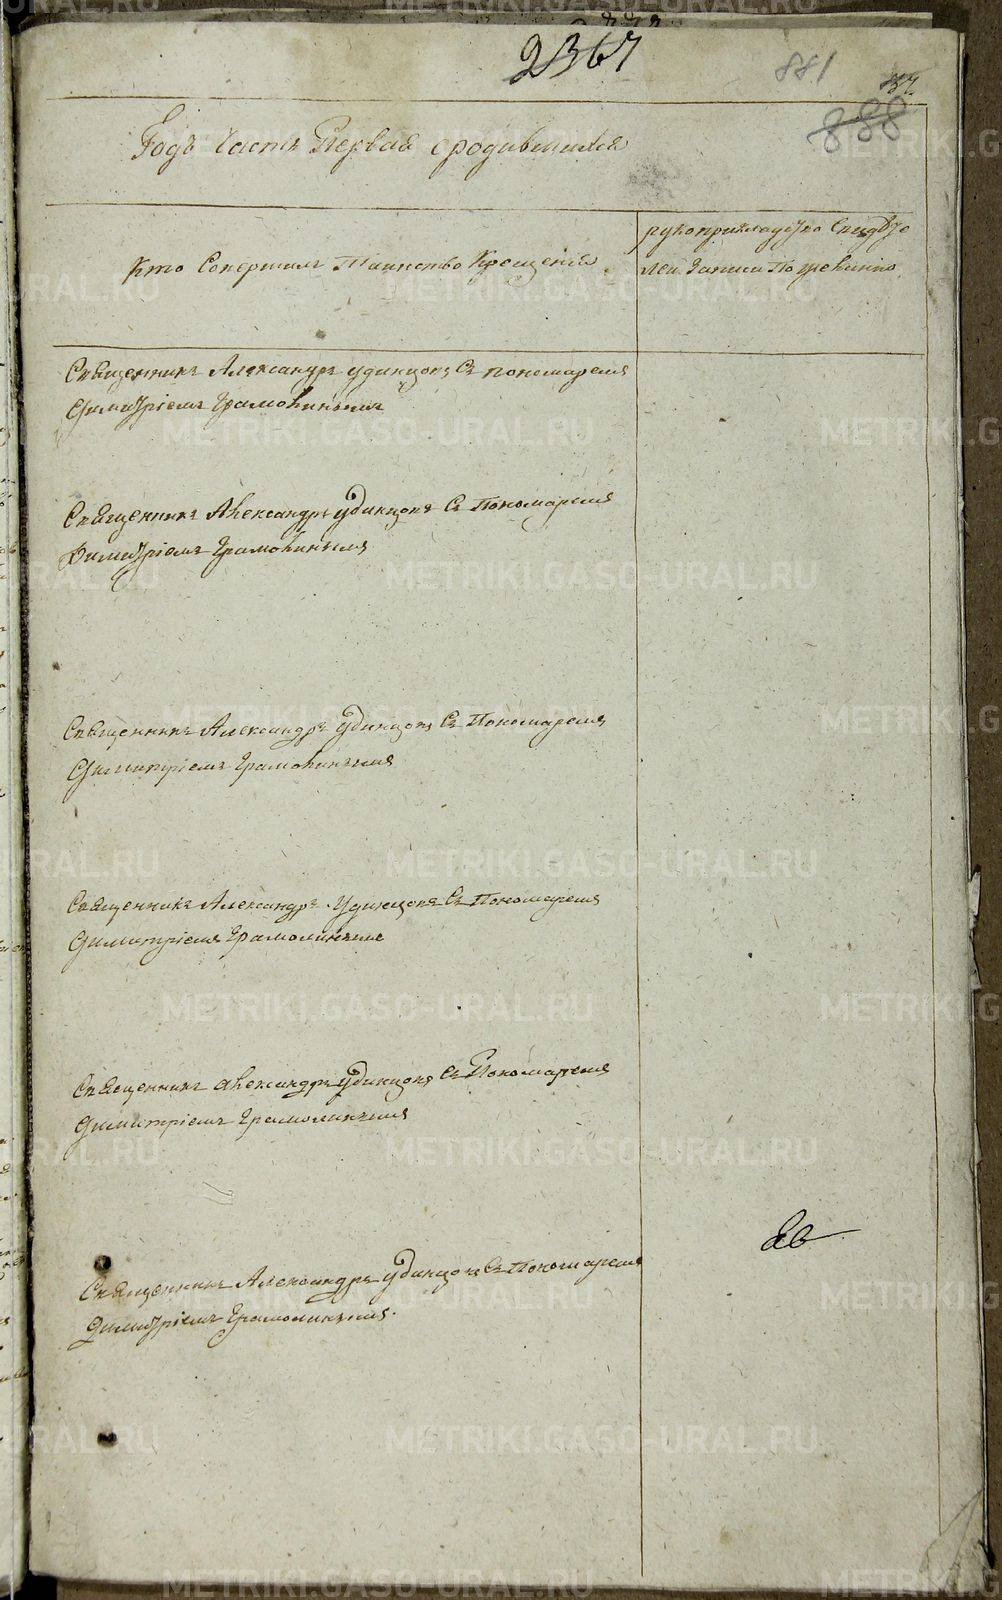 2367
881
87.
888
Годъ Часть Первая о родившихся
Кто Совершилъ Таинство Крещенія
рукоприкладство Свидѣте
лей Записи По желанію
Священникъ Александръ Удинцовъ Съ пономаремъ
Димитріемъ Грамолинымъ
Священникъ Александръ Удинцовъ Съ Пономаремъ
Димитріемъ Грамолинымъ
Священникъ Александръ Удинцовъ Съ Пономаремъ
Димитріемъ Грамолинымъ
Священникъ Александръ Удинцовъ Съ Пономаремъ
Димитріемъ Грамолинымъ
Священникъ Александръ Удинцовъ Съ Пономаремъ
Димитріемъ Грамолинымъ
Священникъ Александръ Удинцовъ Съ Пономаремъ
Димитріемъ Грамолинымъ.
METRIKI.GASO-URAL.RU